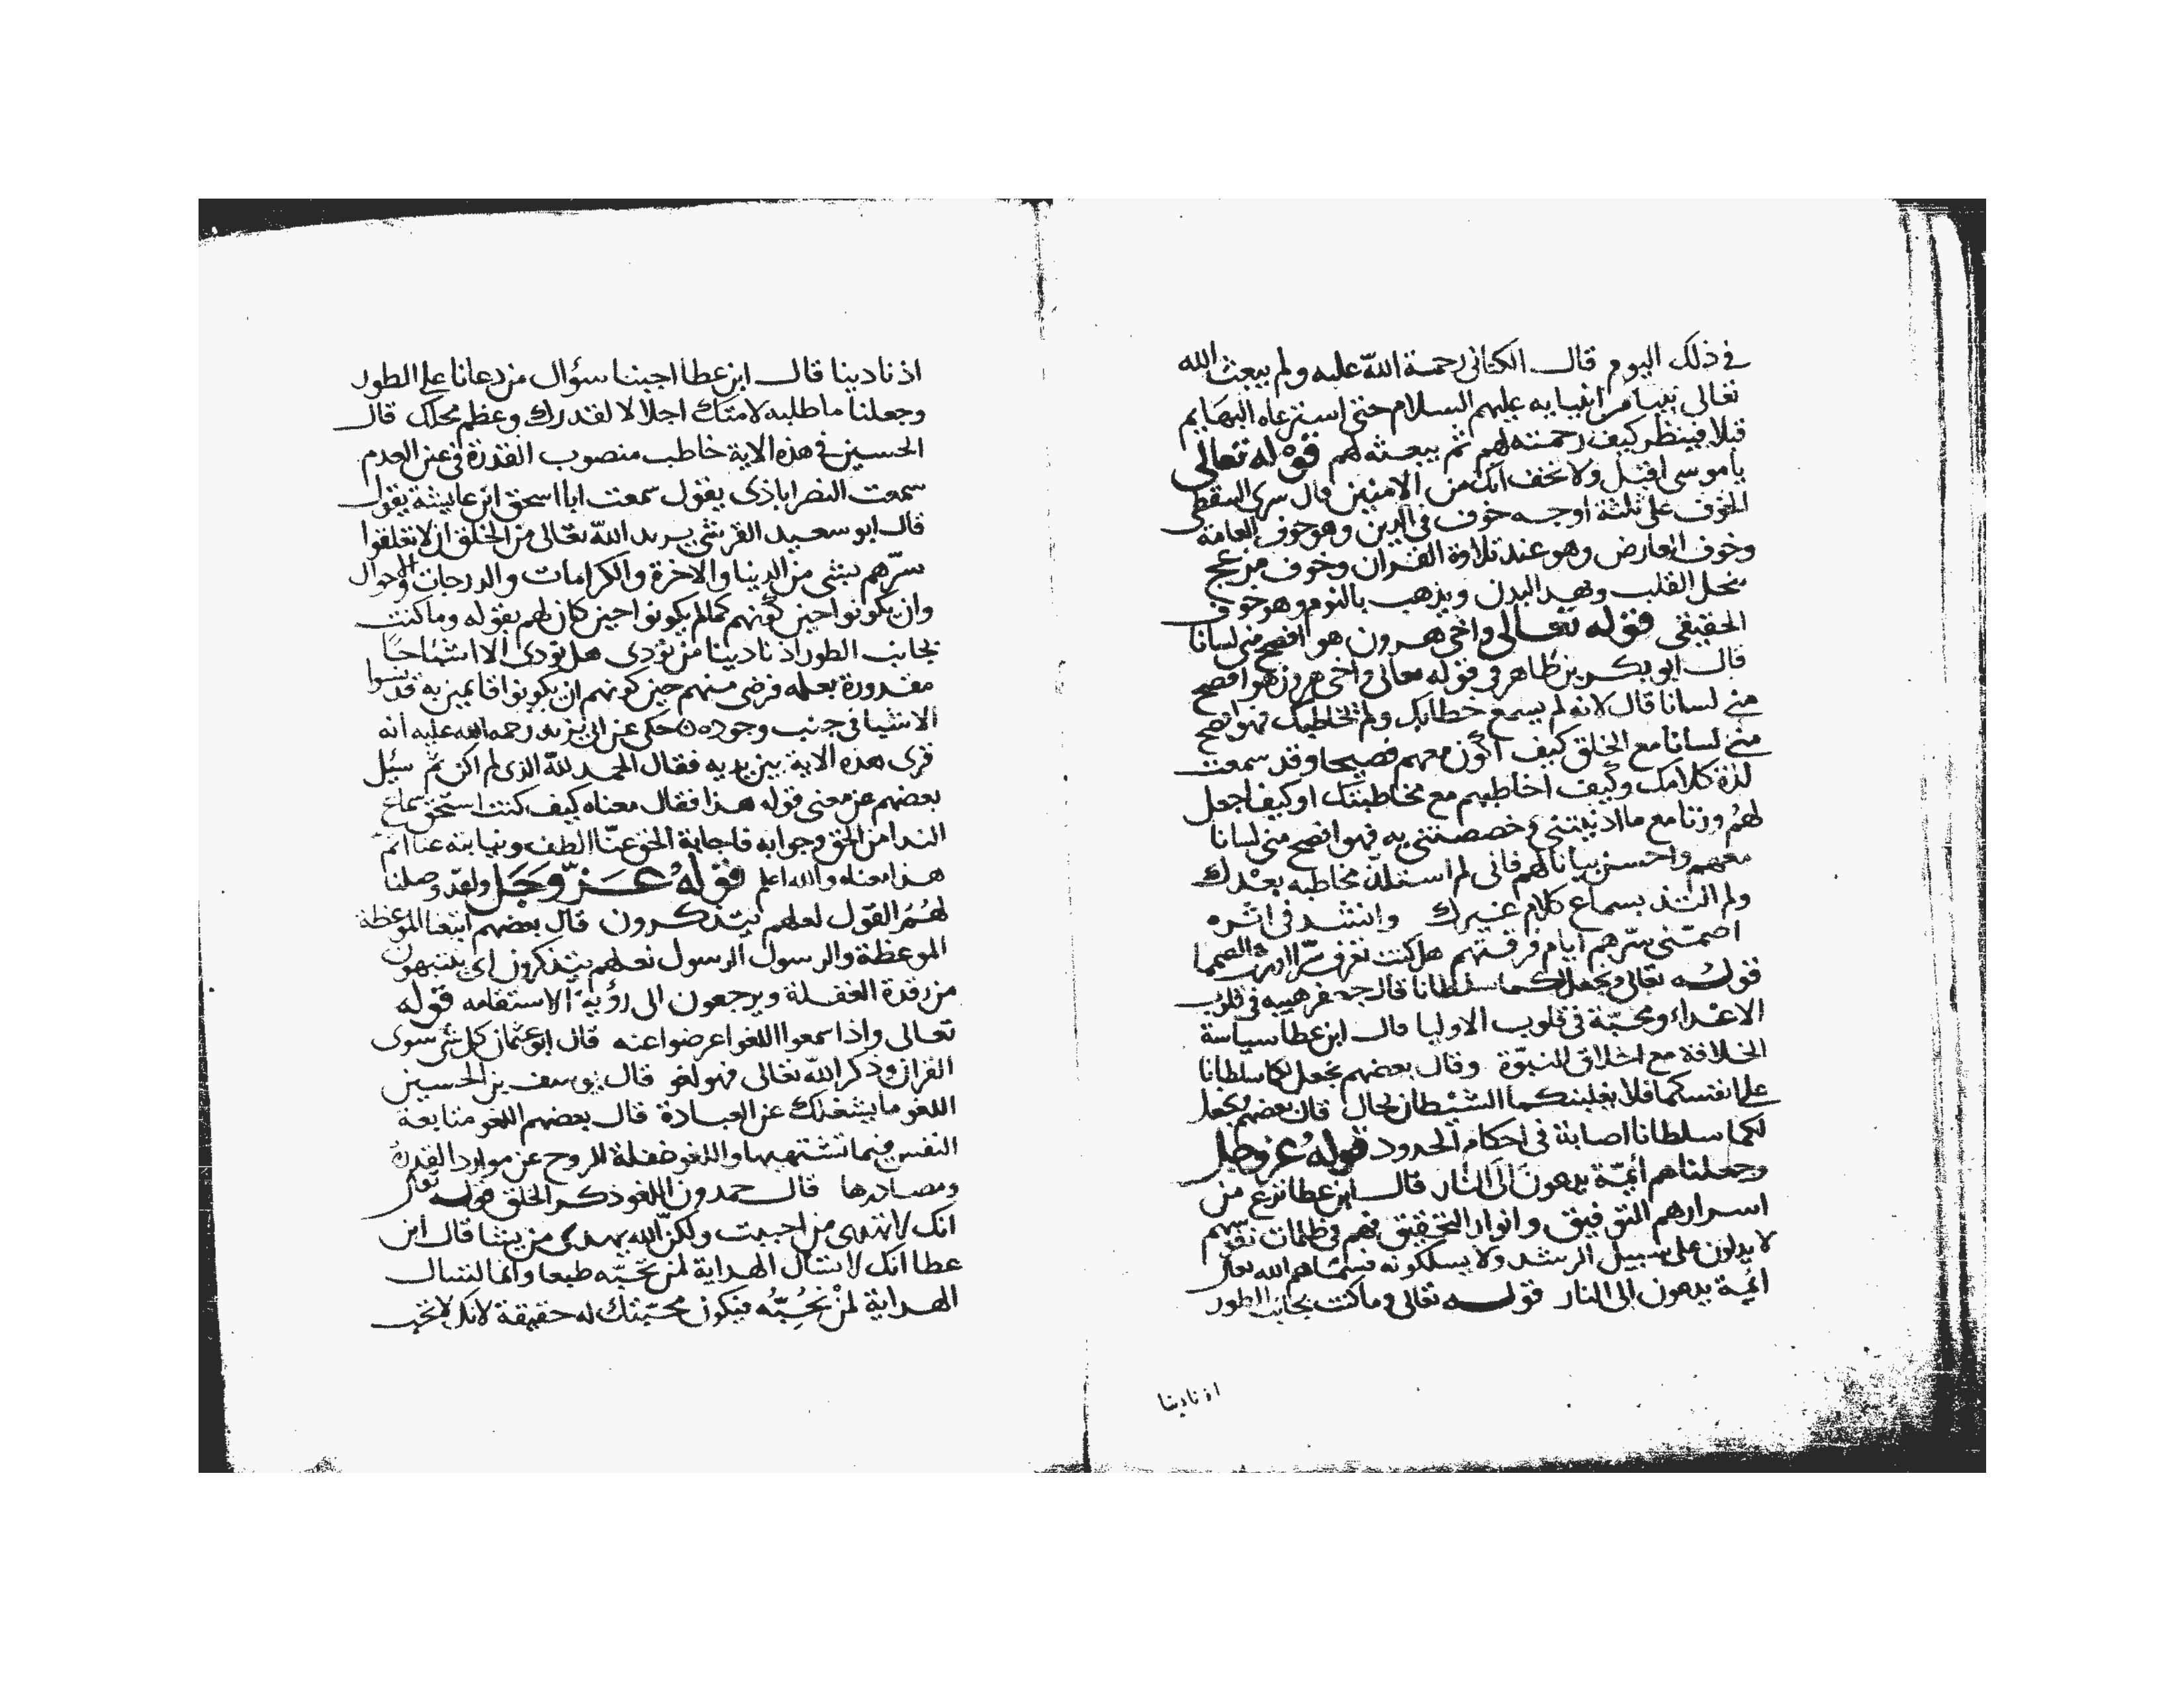 في ذلك اليوم قال الكتاني رحمة الله عليه ولم يبعث الله
تعالى نبيا من انبيايه عليهم السلام حتى استرعاه البهايم
قبلا فينظر كيف رحمته لهم ثم يبعثه لهم قوله تعالى
ياموسى اقبل ولا تخف انك من الامنين قال سرى السقطى
الخوف على ثلثة اوجه خوف في الدين وهو خوف العامة
وخوف العارض وهو عند تلاوة القران وخوف مزعج
ينحل القلب ويهد البدن ويذهب بالنوم وهو خوف
الحقيقى قوله تعالى واخى هرون هو افصح منى لسانا
قال ابو بكر بن طاهر في قوله تعالى واخى هرون هو افصح
منى لسانا قال لانه لم يسمع خطابك ولم تخاطبك فهو افصح
منى لسانا مع الخلق كيف اكون معهم فصيحا وقد سمعت
لذة كلامك وكيف اخاطبهم مع مخاطبتك او كيف اجعل
لهم وزنا مع ما ادنيتنى وخصصتنى به فهو افصح منى لسانا
معهم واحسن بيانا لهم فانى لم استلذ مخاطبه بعدك
ولم التذ بسماع كلام غيرك وانشد في اثره
اصمتنى سرهم ايام فرقتهم هل كنت تعرف سرا يورث الصمما
قوله تعالى ونجعل لكما سلطانا قال جعفر هيبه في قلوب
الاعداء ومحبة في قلوب الاوليا قال ابن عطا سياسة
الخلافة مع اخلاق النبوة وقال بعضهم نجعل لكما سلطانا
على انفسكما فلا يغلبنكما الشيطان بحال قال بعضهم نجعل
لكما سلطانا اصابة في احكام الحدود قوله عز وجل
وجعلناهم ائمة يدعون الى النار قال ابن عطا نزع من
اسرارهم التوفيق وانوار التحقيق فهم في ظلمات نفوسهم
لا يدلون على سبيل الرشد ولا يسلكونه فسماهم الله تعالى
ائمة يدعون الى النار قوله تعالى وما كنت بجانب الطور
اذ نادينا
اذ نادينا قال ابن عطا اجبنا سؤال من دعانا على الطور
وجعلنا ما طلبه لامتك اجلالا لقدرك وعظم محلك قال
الحسين في هذه الاية خاطب منصوب القدرة في عين العدم
سمعت النصراباذى يقول سمعت ابا اسحق ابن عايشة يقول
قال ابو سعيد القرشى يريد الله تعالى من الخلق ان لا تعلقوا
سرهم بشى من الدنيا والاخرة والكرامات والدرجات والاحوال
وان يكونوا حين كونهم كما لم يكونوا حين كان لهم بقوله وما كنت
بجانب الطور اذ نادينا من نودى هل نودى الا اشباحا
مقدورة بعلمه فرضى منهم حين كونهم ان يكونوا قايمين به قد نسوا
الاشيا في جنب وجوده حكى عن ابى يزيد رحمه الله عليه انه
قرى هذه الاية بين يديه فقال الحمد لله الذى لم اكن ثم سئل
بعضهم عن معنى قوله هذا فقال معناه كيف كنت استحق سماع
الندا من الحق وجوابه فاجابة الحق عنا الطف ونيابته عنا اتم
هذا معناه والله اعلم قوله عز وجل ولقد وصلنا
لهم القول لعلهم يتذكرون قال بعضهم اتبعنا الموعظة
الموعظة والرسول الرسول لعلهم يتذكرون اى ينتبهون
من رقدة الغفلة ويرجعون الى رؤية الاستقامه قوله
تعالى واذا سمعوا اللغو اعرضوا عنه قال ابو عثمان كل شى سوى
القران وذكر الله تعالى فهو لغو قال يوسف بن الحسين
اللغو ما يشغلك عن العبادة قال بعضهم اللغو متابعة
النفس فيما تشتهيها واللغو غفلة الروح عن موارد القدرة
ومصادرها قال حمدون اللغو ذكر الخلق قوله تعالى
انك لا تهدى من احببت ولكن الله يهدى من يشا قال ابن
عطا انك لا تسال الهداية لمن تحبه طبعا وانما تسال
الهداية لمن نحبه فيكون محبتك له حقيقة لانك لا تحب